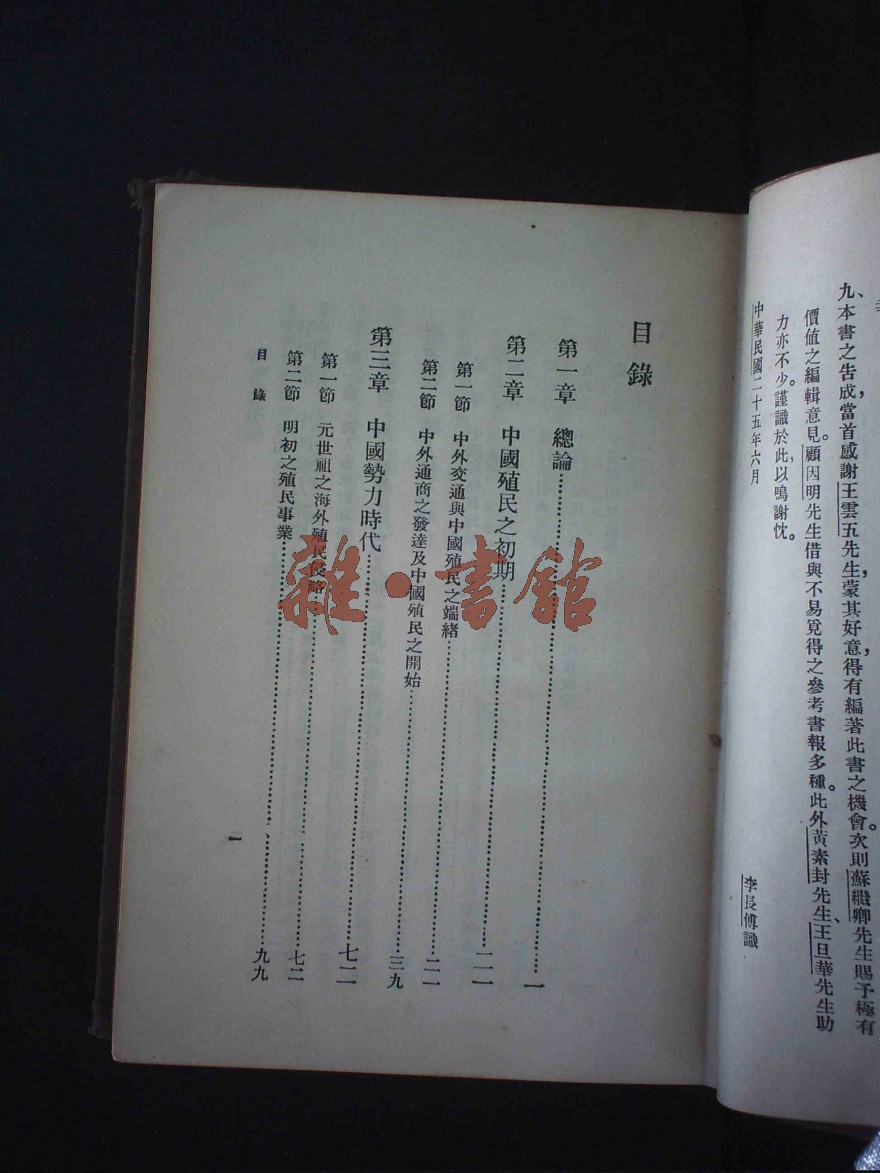 九、本書之告成，當首感謝王雲五先生，蒙其好意，得有編著此書之機會。次則蘇繼卿先生賜予極有
價值之編輯意見。顧因明先生借與不易覓得之參考書報多種。此外黃素封先生、王旦華先生助
力亦不少。謹識於此，以鳴謝忱。
中華民國二十五年六月
李長傅識
目錄
第一章 總論……一
第二章 中國殖民之初期……二一
第一節 中外交通與中國殖民之端緒……二一
第二節 中外通商之發達及中國殖民之開始……三九
第三章 中國勢力時代……七二
第一節 元世祖之海外殖民侵略……七二
第二節 明初之殖民事業……九九
目錄
一
雜·書館